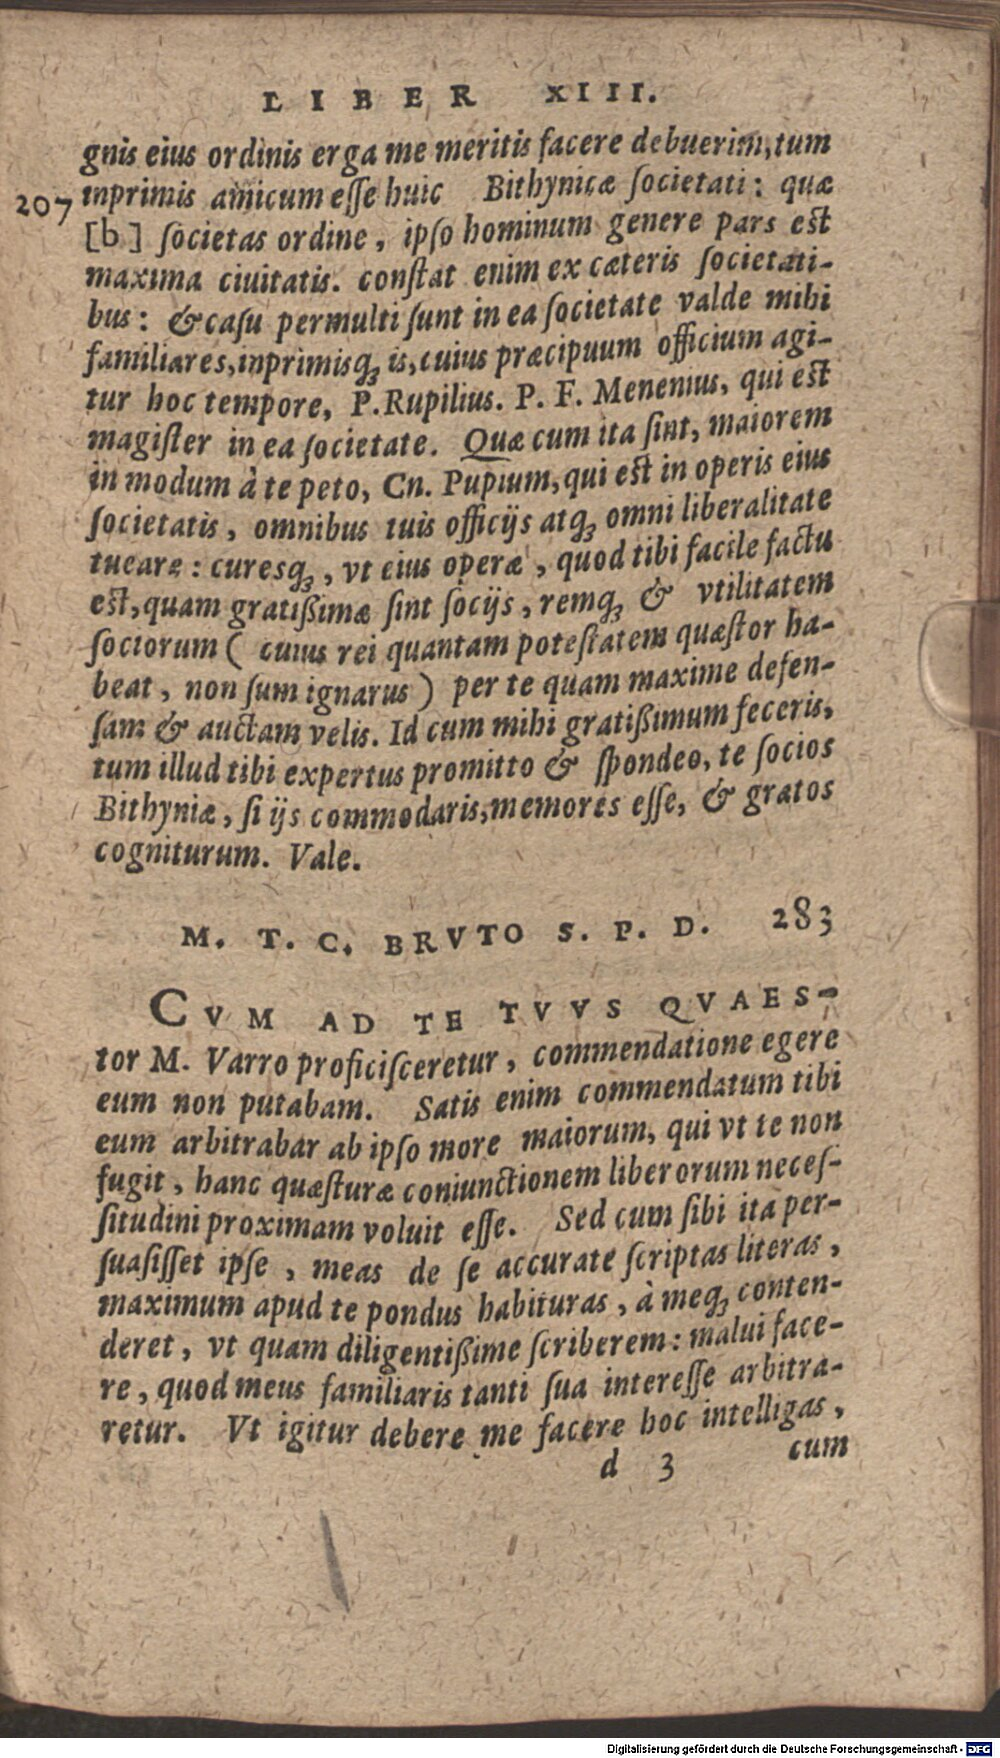 LIBER XIII.
gnis eius ordinis erga me meritis facere debuerim, tum
207 inprimis amicum eſſe huic Bithynicæ ſocietati: quæ
[b] ſocietas ordine, ipſo hominum genere pars est
maxima ciuitatis. conſtat enim ex cæteris ſocietati-
bus: & caſu permulti ſunt in ea ſocietate valde mihi
familiares, inprimisqꝫ is, cuius præcipuum officium agi-
tur hoc tempore, P. Rupilius. P. F. Menenius, qui est
magiſter in ea ſocietate. Quæ cum ita ſint, maiorem
in modum à te peto, Cn. Pupium, qui est in operis eius
ſocietatis, omnibus tuis officijs atqꝫ omni liberalitate
tueare: curesqꝫ, vt eius operæ, quod tibi facile factu
est, quam gratißimæ ſint ſocijs, remqꝫ & vtilitatem
ſociorum ( cuius rei quantam poteſtatem quæſtor ha-
beat, non ſum ignarus ) per te quam maxime defen-
ſam & auctam velis. Id cum mihi gratißimum feceris,
tum illud tibi expertus promitto & ſpondeo, te ſocios
Bithyniæ, ſi ijs commodaris, memores eſſe, & gratos
cogniturum. Vale.
M. T. C. BRVTO S. P. D. 283
CVM AD TE TVVS QVAES-
tor M. Varro proficiſceretur, commendatione egere
eum non putabam. Satis enim commendatum tibi
eum arbitrabar ab ipſo more maiorum, qui vt te non
fugit, hanc quæſturæ coniunctionem liberorum neceſ-
ſitudini proximam voluit eſſe. Sed cum ſibi ita per-
ſuaſiſſet ipſe, meas de ſe accurate ſcriptas literas,
maximum apud te pondus habituras, à meqꝫ conten-
deret, vt quam diligentißime ſcriberem: malui face-
re, quod meus familiaris tanti ſua intereſſe arbitra-
retur. Vt igitur debere me facere hoc intelligas,
d 3 cum
Digitalisierung gefördert durch die Deutsche Forschungsgemeinschaft - DFG